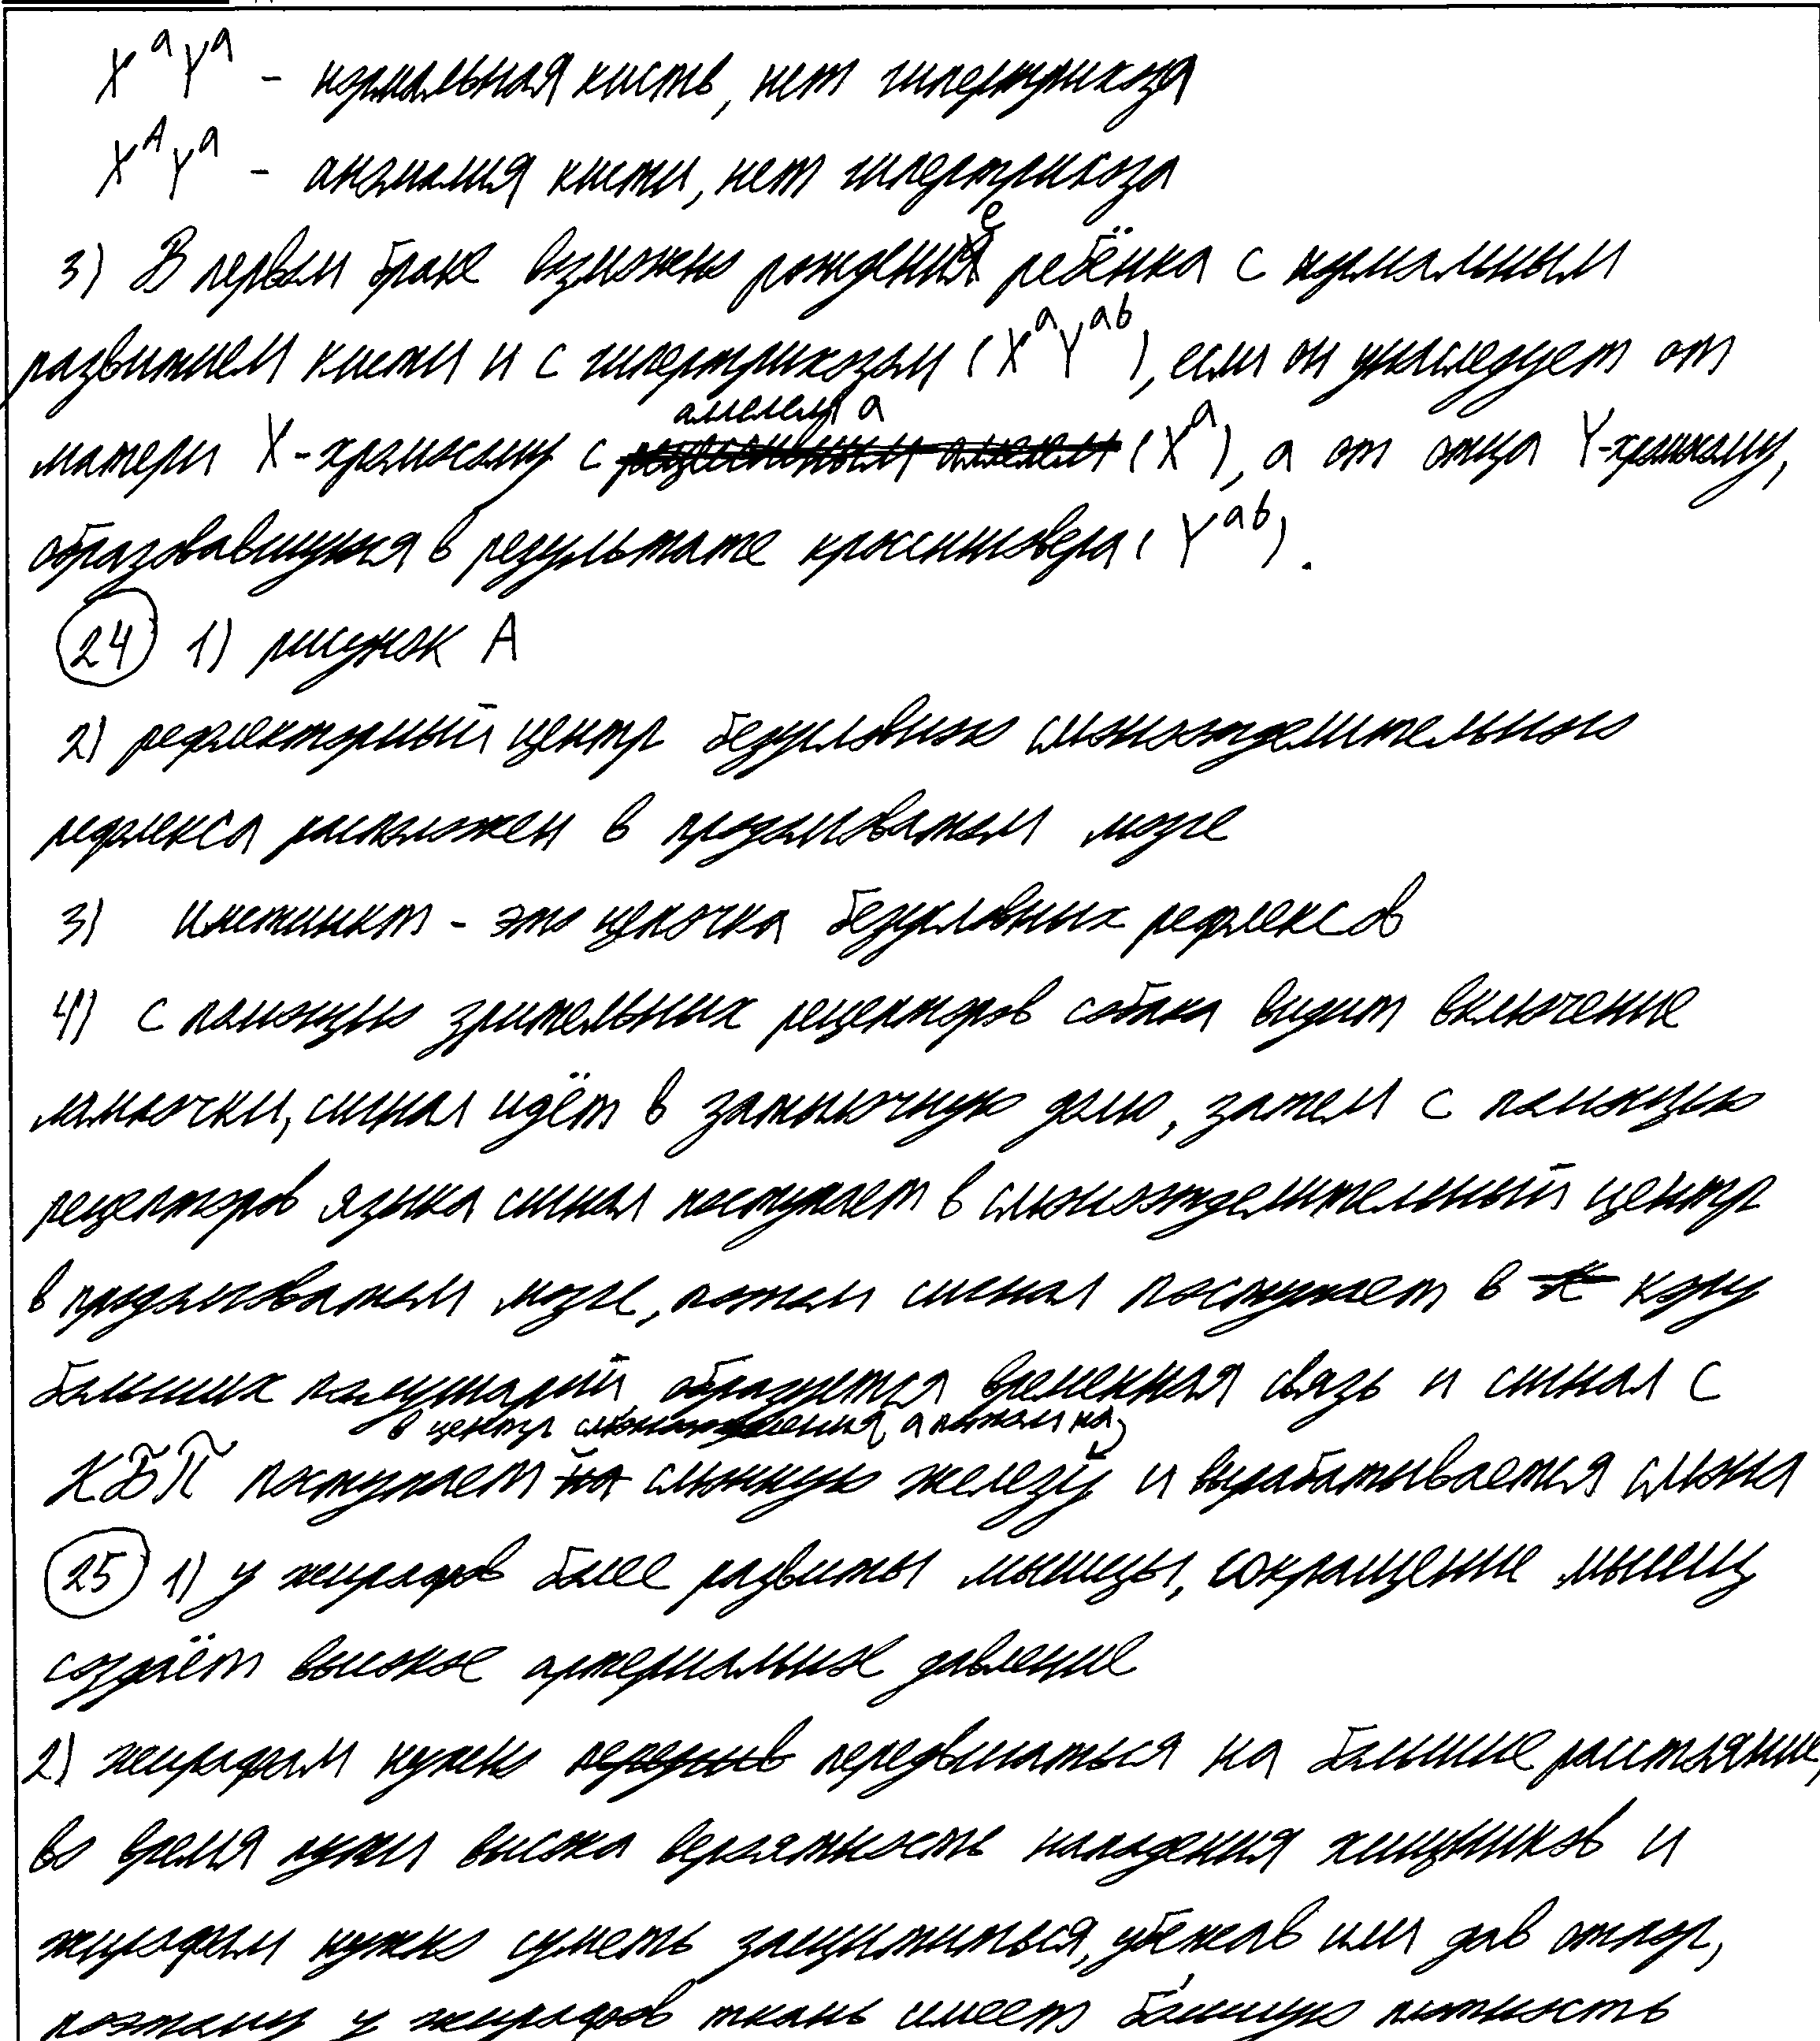 XᵃYᵃ - нормальная кисть, нет гипертрихоза
XᴬYᵃ - аномалия кисти, нет гипертрихоза
3) В первом браке возможно рождение ребёнка с нормальным
развитием кисти и с гипертрихозом (XᵃYᵃᵇ), если он унаследует от
матери X-хромосому с аллелем а (Xᵃ), а от отца Y-хромосому,
образовавшуюся в результате кроссинговера (Yᵃᵇ).
24 1) рисунок А
2) рефлекторный центр безусловного слюноотделительного
рефлекса расположен в продолговатом мозге
3) Инстинкт - это цепочка безусловных рефлексов
4) с помощью зрительных рецепторов собака видит включение
лампочки, сигнал идёт в затылочную долю, затем с помощью
рецепторов языка сигнал поступает в слюноотделительный центр
в продолговатом мозге, потом сигнал поступает в кору
больших полушарий, образуется временная связь и сигнал с
в центр слюноотделения, а потом на
КБП поступает слюнную железу и вырабатывается слюна
25 1) у жирафов более развиты мышцы, сокращение мышц
создаёт высокое артериальное давление
2) жирафам нужно передвигаться на большие расстояние,
во время пути высока вероятность нападения хищников и
жирафам нужно суметь защититься, убежав или дав отпор,
поэтому у жирафов ткань имеет большую плотность